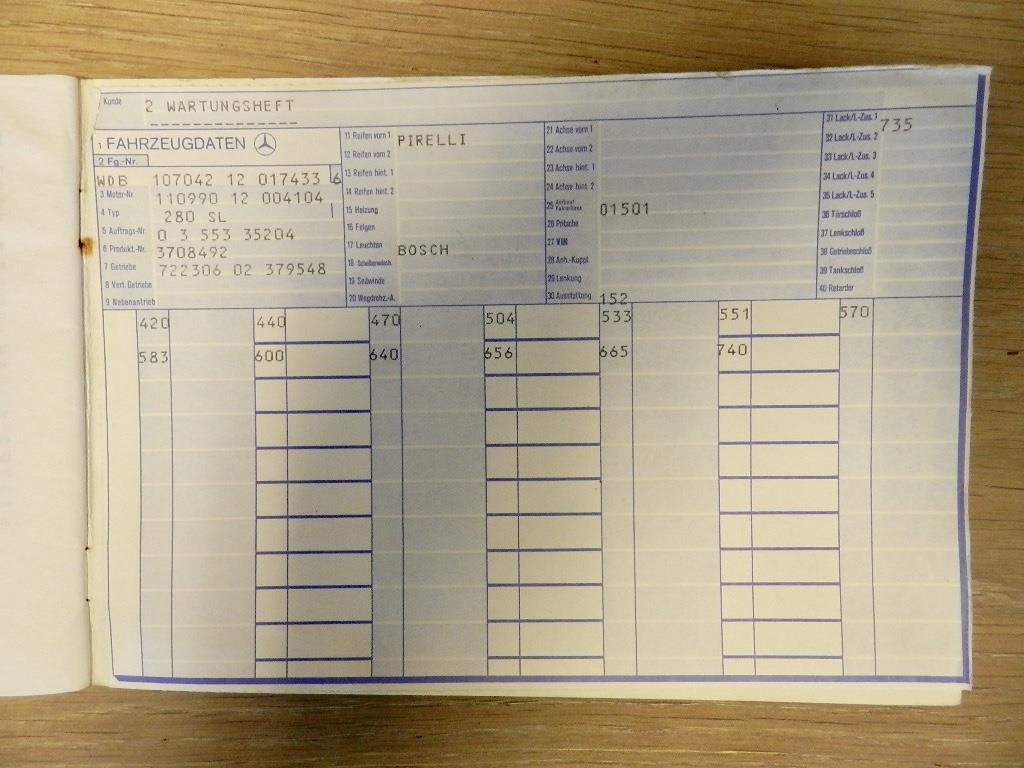 Kunde 2 WARTUNGSHEFT
1 FAHRZEUGDATEN
2 Fg.-Nr.
WDB 107042 12 017433 6
3 Motor-Nr. 110990 12 004104
4 Typ 280 SL
5 Auftrags-Nr. 0 3 553 35204
6 Produkt.-Nr. 3708492
7 Getriebe 722306 02 379548
8 Vert. Getriebe
9 Nebenantrieb
11 Reifen vorn 1 PIRELLI
12 Reifen vorn 2
13 Reifen hint. 1
14 Reifen hint. 2
15 Heizung
16 Felgen
17 Leuchten BOSCH
18 Scheibenwisch.
19 Seilwinde
20 Wegdrehz.-A.
21 Achse vorn 1
22 Achse vorn 2
23 Achse hint. 1
24 Achse hint. 2
25 Aufbau/Fahrerhaus 01501
26 Pritsche
27 VIN
28 Anh.-Kuppl.
29 Lenkung
30 Ausstattung 152
31 Lack/L-Zus. 1 735
32 Lack/L-Zus. 2
33 Lack/L-Zus. 3
34 Lack/L-Zus. 4
35 Lack/L-Zus. 5
36 Türschloß
37 Lenkschloß
38 Getriebeschloß
39 Tankschloß
40 Retarder
420 440 470 504 533 551 570
583 600 640 656 665 740